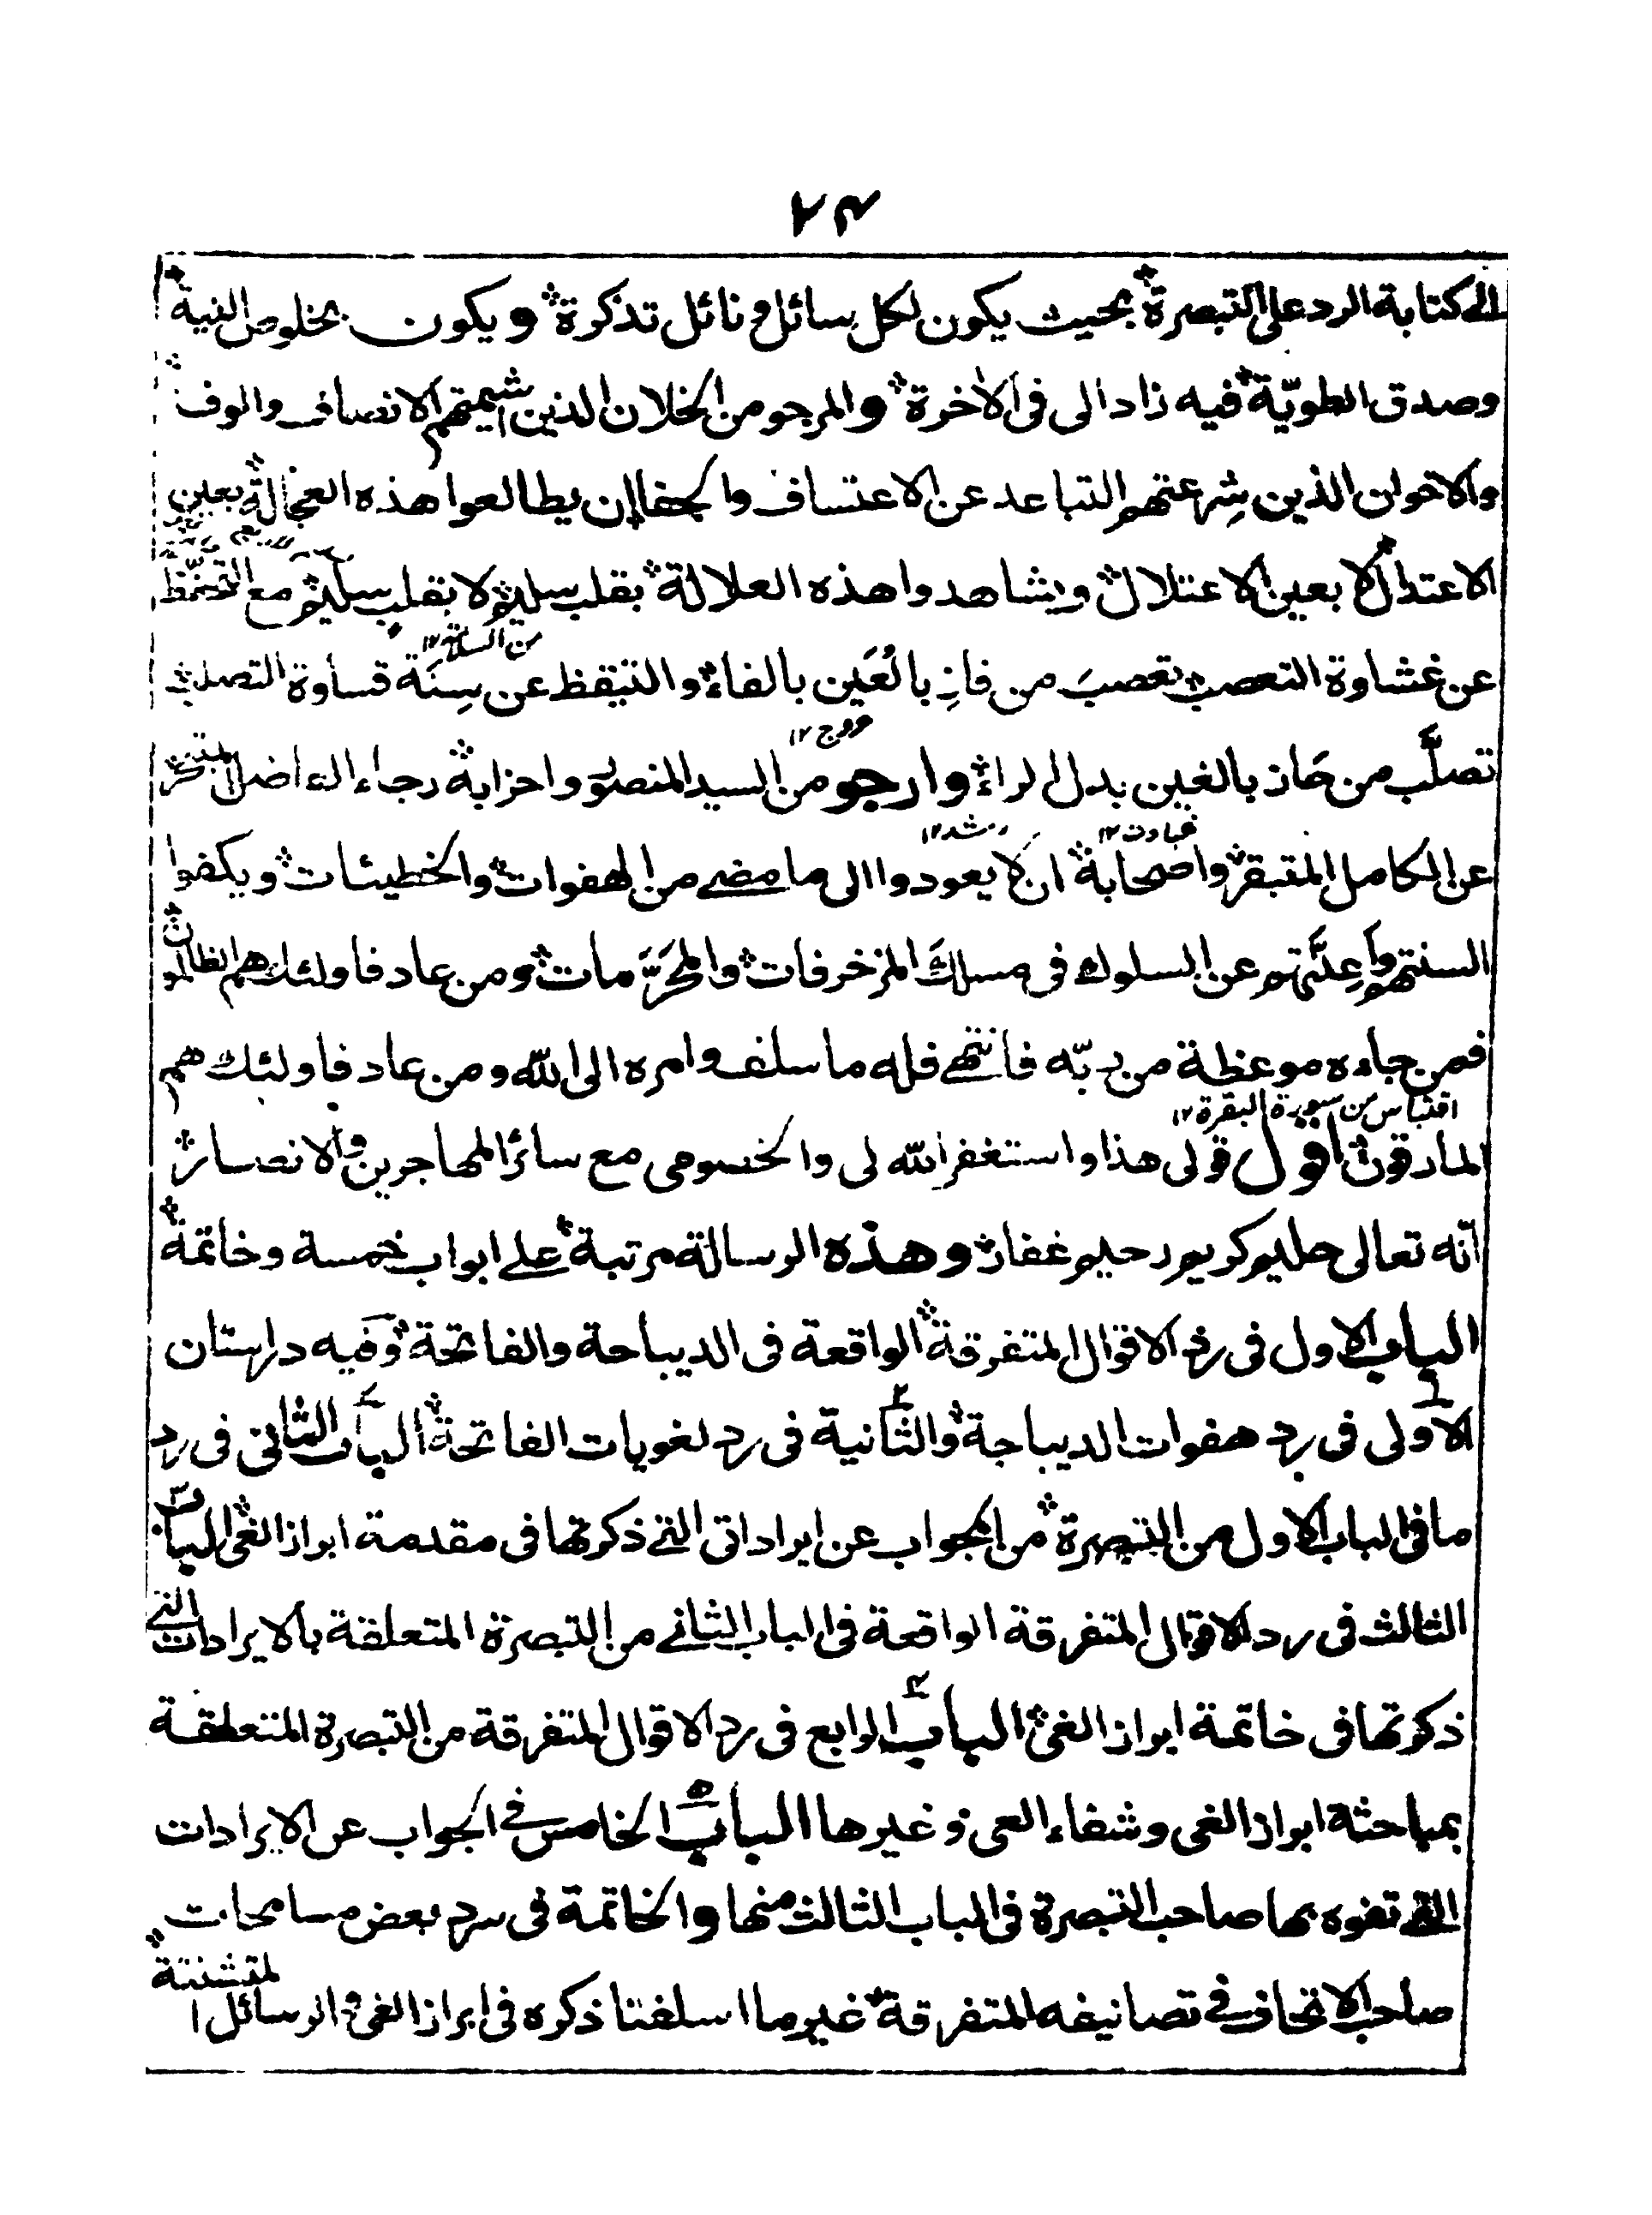 ٧٤
الى كتابة الرد على التبصرة بحيث يكون لكل سائل ونائل تذكرة ويكون بخلوص النية
وصدق الطويّة فيه زادا لى فى الاخرة والمرجو من الخلان الذين شيمتهم الانصاف والوف
والاخوان الذين شِرعتهم التباعد عن الاعتساف والجفا ان يطالعوا هذه العجالة بعين
الاعتدال لا بعين الاعتلال ويشاهدوا هذه العلالة بقلب سليم لا بقلب سليم مع التحفظ
من السلامة ١٢
عن غشاوة التعصب تعصبَ من فازِ بالعَين بالفاء والتيقظ عن سِنَة قساوة التصلب
تصلَّب من حَاز بالغين بدل الراء وارجو من السيد المنصور واحزابه رجاء الفاضل المتبحر
عن الكامل المتبقر واصحابه ان لا يعودوا الى ما مضى من الهفوات والخطيئات ويكفوا
السنتهم واَعِنَّتهم عن السلوك فى مسلك المزخرفات والمحرَّمات ومن عاد فاولئك هم الظالمون
فمن جاءه موعظة من ربّه فانتهى فله ما سلف وامره الى الله ومن عاد فاولئك هم
اقتباس من سورة البقرة ١٢
المارقون اقول قولى هذا واستغفر الله لى والخصومى مع سائر المهاجرين والانصار
انّه تعالى حليم كريم رحيم غفار وهذه الرسالة مرتبة على ابواب خمسة وخاتمة
الباب الاول فى رد الاقوال المتفرقة الواقعة فى الديباجة والفاتحة وفيه دراستان
الاولى فى رد هفوات الديباجة والثانية فى رد لغويات الفاتحة الباب الثانى فى رد
ما فى الباب الاول من التبصرة من الجواب عن ايراداتى التى ذكرتها فى مقدمة ابراز الغى الباب
الثالث فى رد الاقوال المتفرقة الواقعة فى الباب الثانى من التبصرة المتعلقة بالايرادات التى
ذكرتها فى خاتمة ابراز الغى الباب الرابع فى رد الاقوال المتفرقة من التبصرة المتعلقة
بمباحثة ابراز الغى وشفاء العى وغيرها الباب الخامس فى الجواب عن الايرادات
التى تفوه بها صاحب التبصرة فى الباب الثالث منها والخاتمة فى سرد بعض مسامحات
صاحب الاتحاف فى تصانيفه المتفرقة غير ما اسلفنا ذكره فى ابراز الغى والرسائل المتشتتة